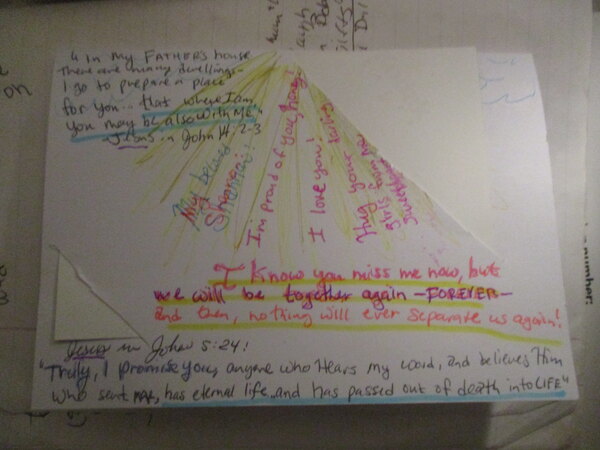 "In My FATHER'S house
There are many dwellings-
I go to prepare a place
for you... that where I am,
you may be also with Me."
-Jesus in John 14:2-3
My
Shannan!
I'm proud of you, honey!
I love you!
Hug your
girls from me
I know you miss me now, but
we will be together again -FOREVER-
and then, nothing will ever separate us again!
Jesus in John 5:24!
"Truly, I promise you, anyone who Hears my word, and believes Him
who sent me, has eternal life...and has passed out of death into LIFE"
number:
on